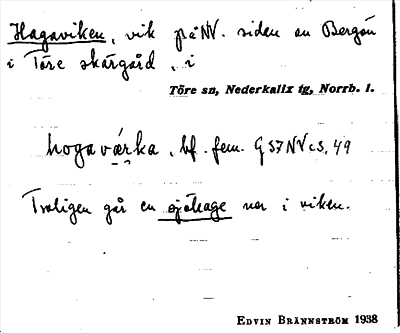 Hagaviken, vik på NV. sidan av Bergön
i Töre skärgård, i
Töre sn, Nederkalix tg, Norrb. l.
hogavǽrka, bf. fem. G 57 NV c S. 49
Troligen går en sjöhage ner i viken.
EDVIN BRÄNNSTRÖM 1938